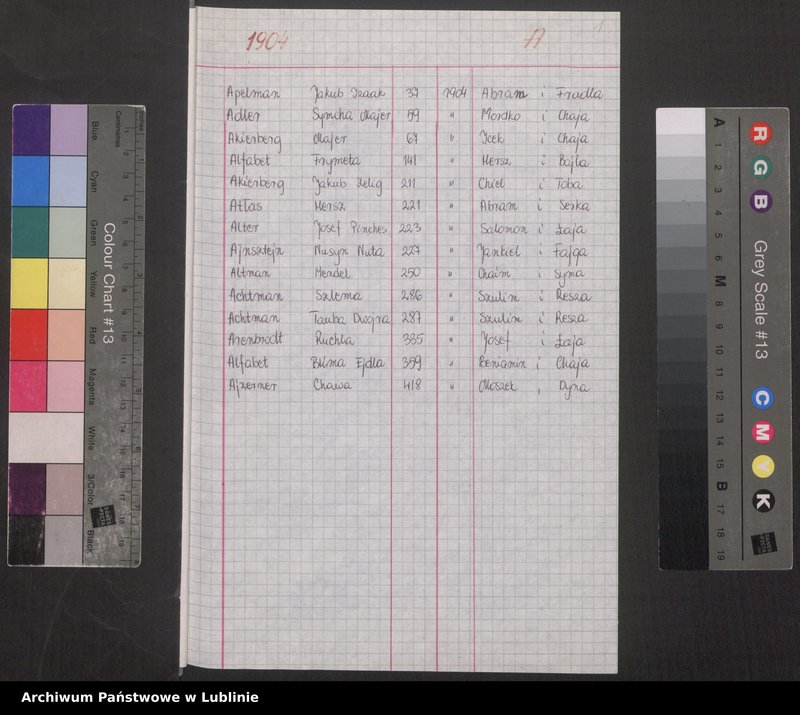 1904 A 1
Apelman Jakub Izaak 37 1904 Abram i Fradla
Adler Symcha Majer 59 " Mordko i Chaja
Akierberg Majer 67 " Icek i Chaja
Alfabet Frymeta 141 " Hersz i Bajla
Akierberg Jakub Zelig 211 " Chiel i Toba
Atłas Hersz 221 " Abram i Serka
Alter Josef Pinches 223 " Salomon i Łaja
Ajnsztejn Nusyn Nuta 227 " Jankiel i Fajga
Altman Mendel 250 " Chaim i Syma
Achtman Szlema 286 " Szulim i Resza
Achtman Tauba Dwojra 287 " Szulim i Resza
Arenbrodt Ruchla 335 " Josef i Łaja
Alfabet Bluma Ejdla 359 " Beniamin i Chaja
Ajzerner Chawa 418 " Moszek , Dyna
Colour Chart #13
Blue Cyan Green Yellow Red Magenta White 3/Color Black
Centimetres Inches
Grey Scale #13
R G B C M Y K
A 1 2 3 4 5 6 M 8 9 10 11 12 13 14 15 B 17 18 19
Archiwum Państwowe w Lublinie